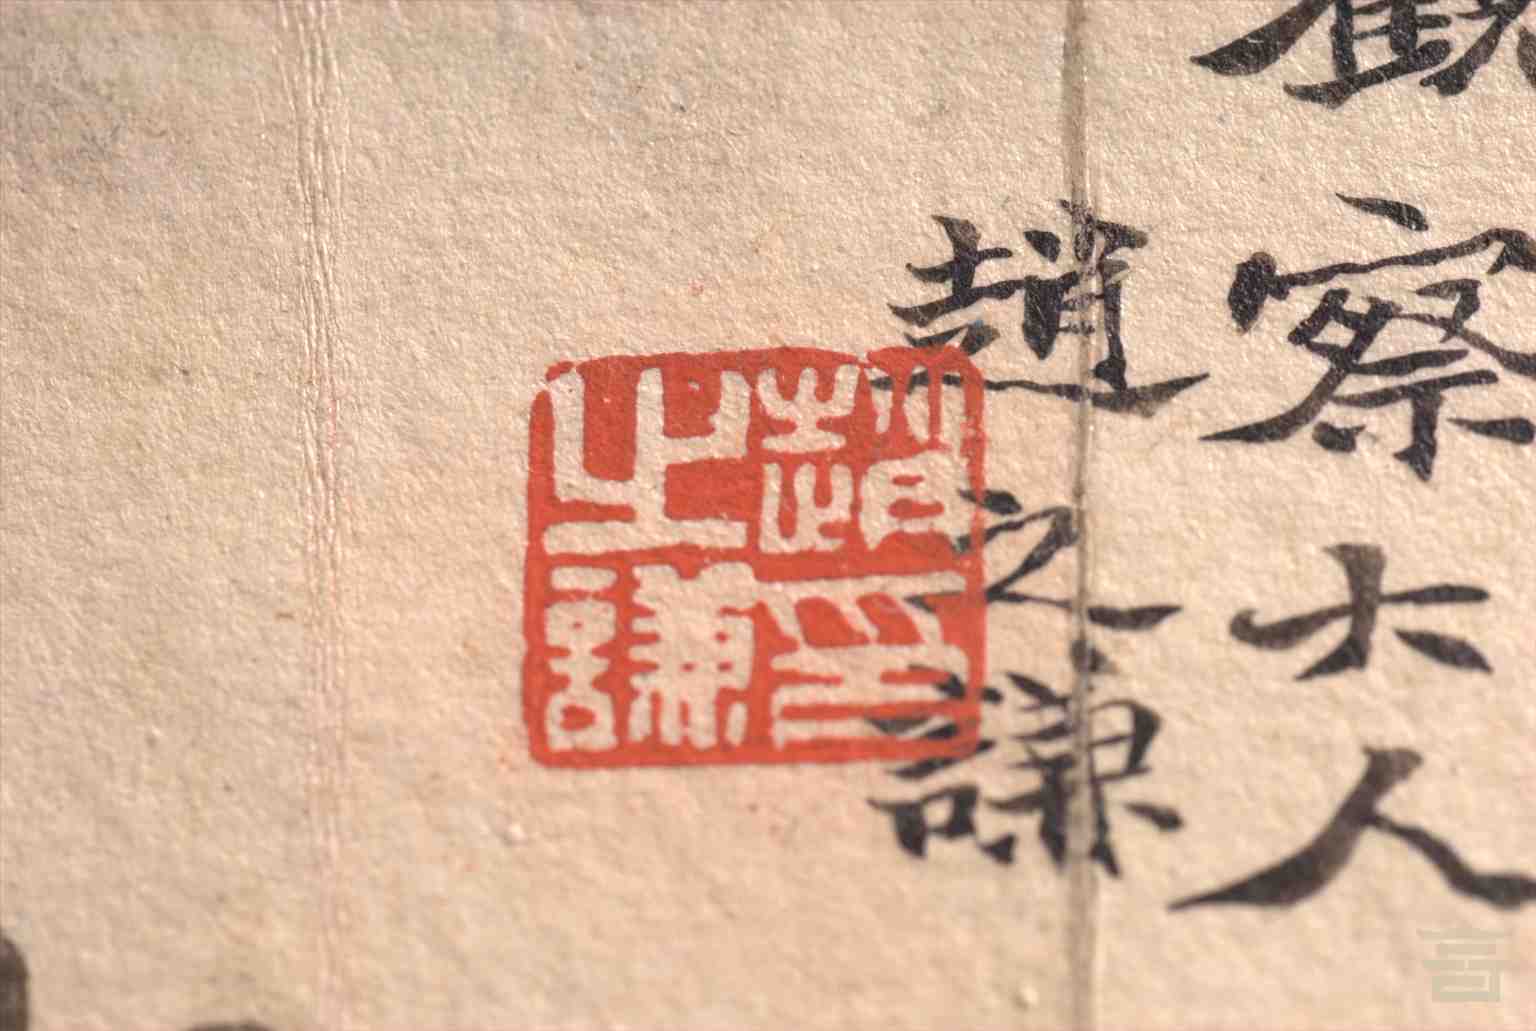 觀察大人
趙之謙
趙印之謙